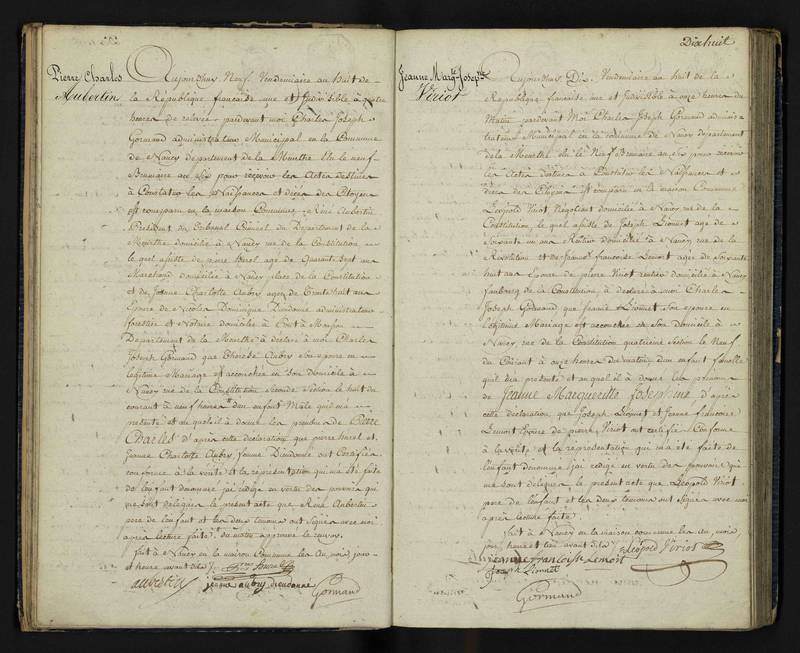 Pierre Charles
Aubertin
Aujourd'huy Neuf Vendemiaire an huit de
la Republique francaise une et Indivisible à quatre
heures de relevée pardevant moi Charles Joseph
Gormand administrateur Municipal en la Commune
de Nancy departement de la Meurthe Elu le neuf
Brumaire an six pour recevoir les Actes destinés
à Constater les Naissances et décès des Citoyens
est comparu en la maison Commune René Aubertin
President du tribunal Criminel du Departement de la
Meurthe domicilié à Nancy rue de la Constitution
le quel assisté de pierre hurel agé de Quarante sept ans
Marchand domicilié à Nancy place de la Constitution
et de Jeanne Charlotte Aubry agée de Trente huit ans
Epouse de Nicolas Dominique Dieudonné administrateur
forestier et Notaire domicilié à Pont à Mousson
Departement de la Meurthe à déclaré à moi Charles
Joseph Gormand que Therese Aubry son epouse en
legitime Mariage est accouchée en son domicile à
Nancy rue de la Constitution seconde Section le huit du
courant à neuf heures d'un enfant Male qu'il m'a
presenté et au quel il à donné les prenoms de Pierre
Charles d'après cette declaration que pierre hurel et
Jeanne Charlotte Aubry femme Dieudonné ont Certifiée
conforme à la verité et la representation qui m'a été faite
de l'enfant denommé j'ai redigé en vertu des pouvoirs qui
me sont delegués le present acte que René Aubertin
pere de l'enfant et les deux temoins ont signé avec moi
après lecture faite
fait à Nancy en la maison Commune les an, mois, jour
et heure avant dits
aubertin
jeanne aubry dieudonné
Gormand
Dixhuit
Jeanne Margte Josephe
Viriot
Aujourd'huy Dix Vendemiaire an huit de la
Republique francaise une et Indivisible à onze heures du
Matin pardevant Moi Charles Joseph Gormand adminis
trateur Municipal en la commune de Nancy departement
de la Meurthe Elu le Neuf Brumaire an six pour recevoir
les Actes destinés à Constater les Naissances et
décès des Citoyens est comparu en la maison Commune
Léopold Viriot Négotiant domicilié à Nancy rue de la
Constitution, le quel assisté de Joseph Lionnet agé de
soixante un ans Rentier domicilié à Nancy rue de la
Constitution et de Jeanne francoise Lemort agée de soixante
huit ans Epouse de pierre Viriot rentier domicilié à Nancy
faubourg de la Constitution à déclaré à moi Charles
Joseph Gormand que Jeanne Lionnet son epouse en
legitime Mariage est accouchée en Son domicile à
Nancy rue de la Constitution quatrieme Section le Neuf
du Courant à onze heures du matin d'un enfant femelle
qu'il m'a presenté et au quel il à donné les prenoms
de Jeanne Marguerite Josephine d'après
cette declaration que Joseph Lionnet et Jeanne francoise
Lemort Epouse de pierre Viriot ont certifiée Conforme
à la verité et la representation qui m'a été faite de
l'enfant denommé j'ai redigé en vertu des pouvoirs qui
me sont delegués, le present acte que Léopold Viriot
pere de l'enfant et les deux temoins ont signé avec moi
après lecture faite
fait à Nancy en la maison commune les an, mois
jour heure et lieu avant dits
Léopold Viriot
jeanne francoise Lemort
Joseph Lionnet
Gormand